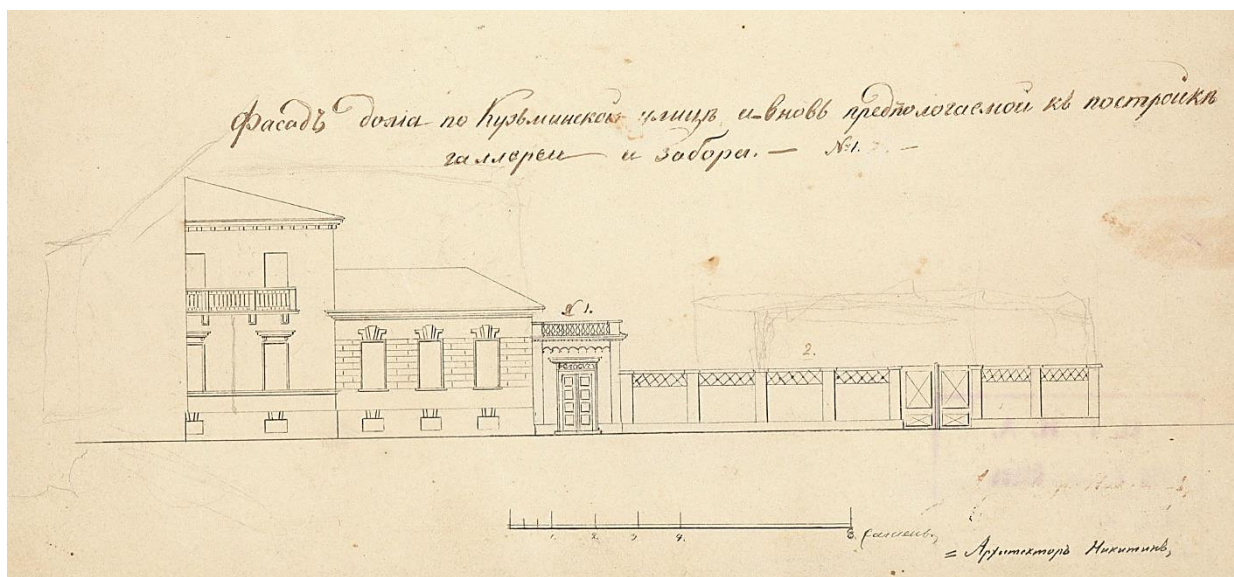 Фасадъ дома по Кузьминской улицѣ и вновь предпологаемой къ постройкѣ
галлереи и забора. — №1. —
№ 1.
2.
1. 2. 3. 4. 8. сажень,
= Архитекторъ Никитинъ,